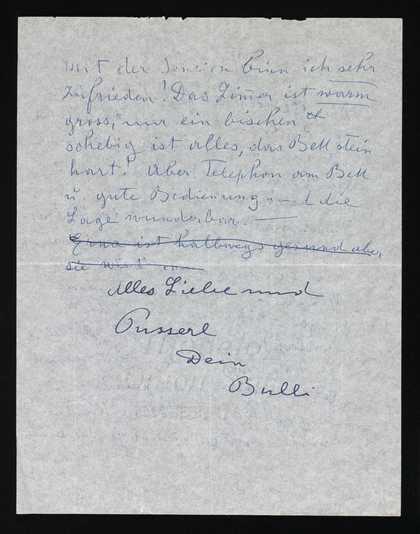 mit der Pension bin ich sehr
zufrieden! Das Zimmer ist warm
gross, nur ein bischen
schebig ist alles, das Bett stein
hart! Aber Telephon am Bett
u. gute Bedienung – u die
Lage wunderbar. —
Erna ist halbwegs gesund aber
sie wird
Alles Liebe und
Pusserl
Dein
Bulli